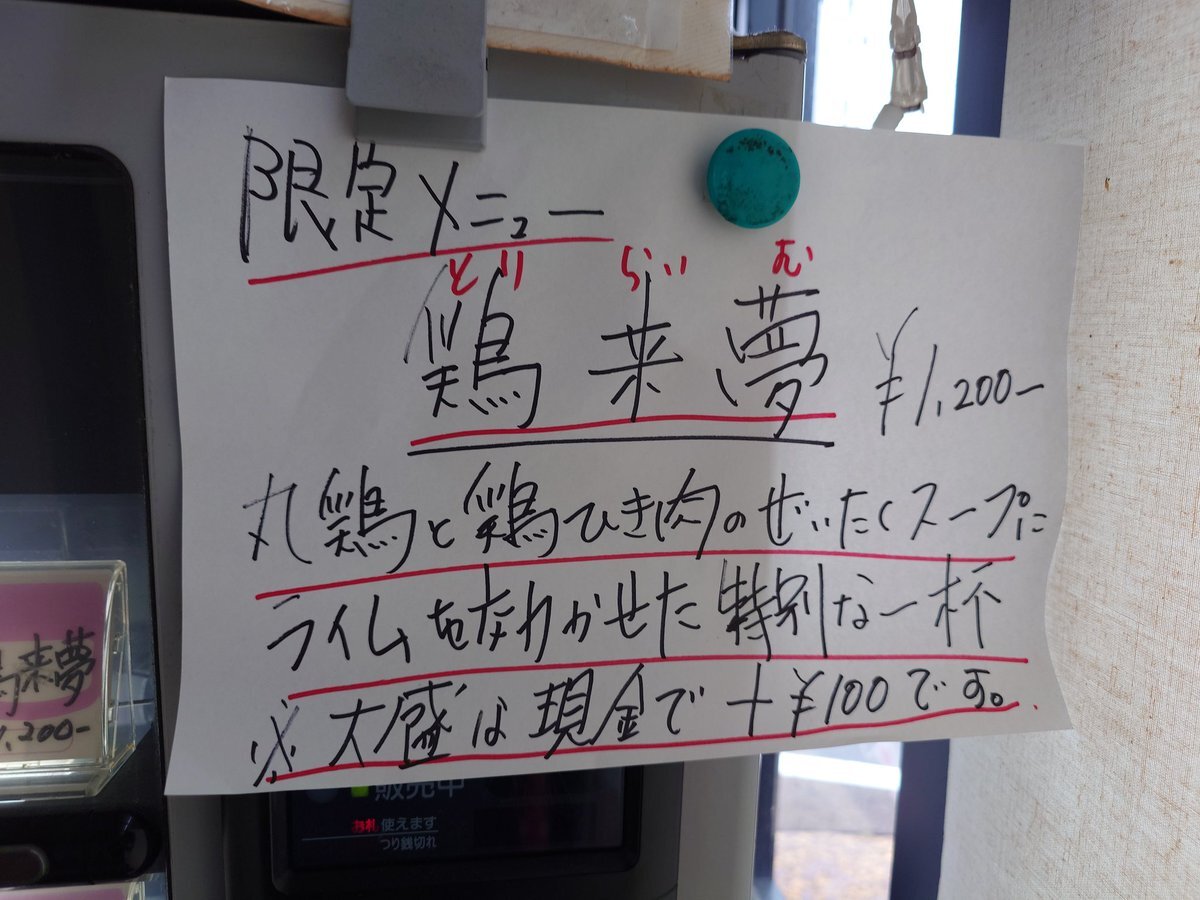 限定メニュー
とり らい む
鶏来夢 ¥1,200-
丸鶏と鶏ひき肉のぜいたくスープに
ライムを効かせた特別な一杯
※大盛は現金で+¥100です。
来夢
1,200-
販売中
お札 使えます
つり銭切れ